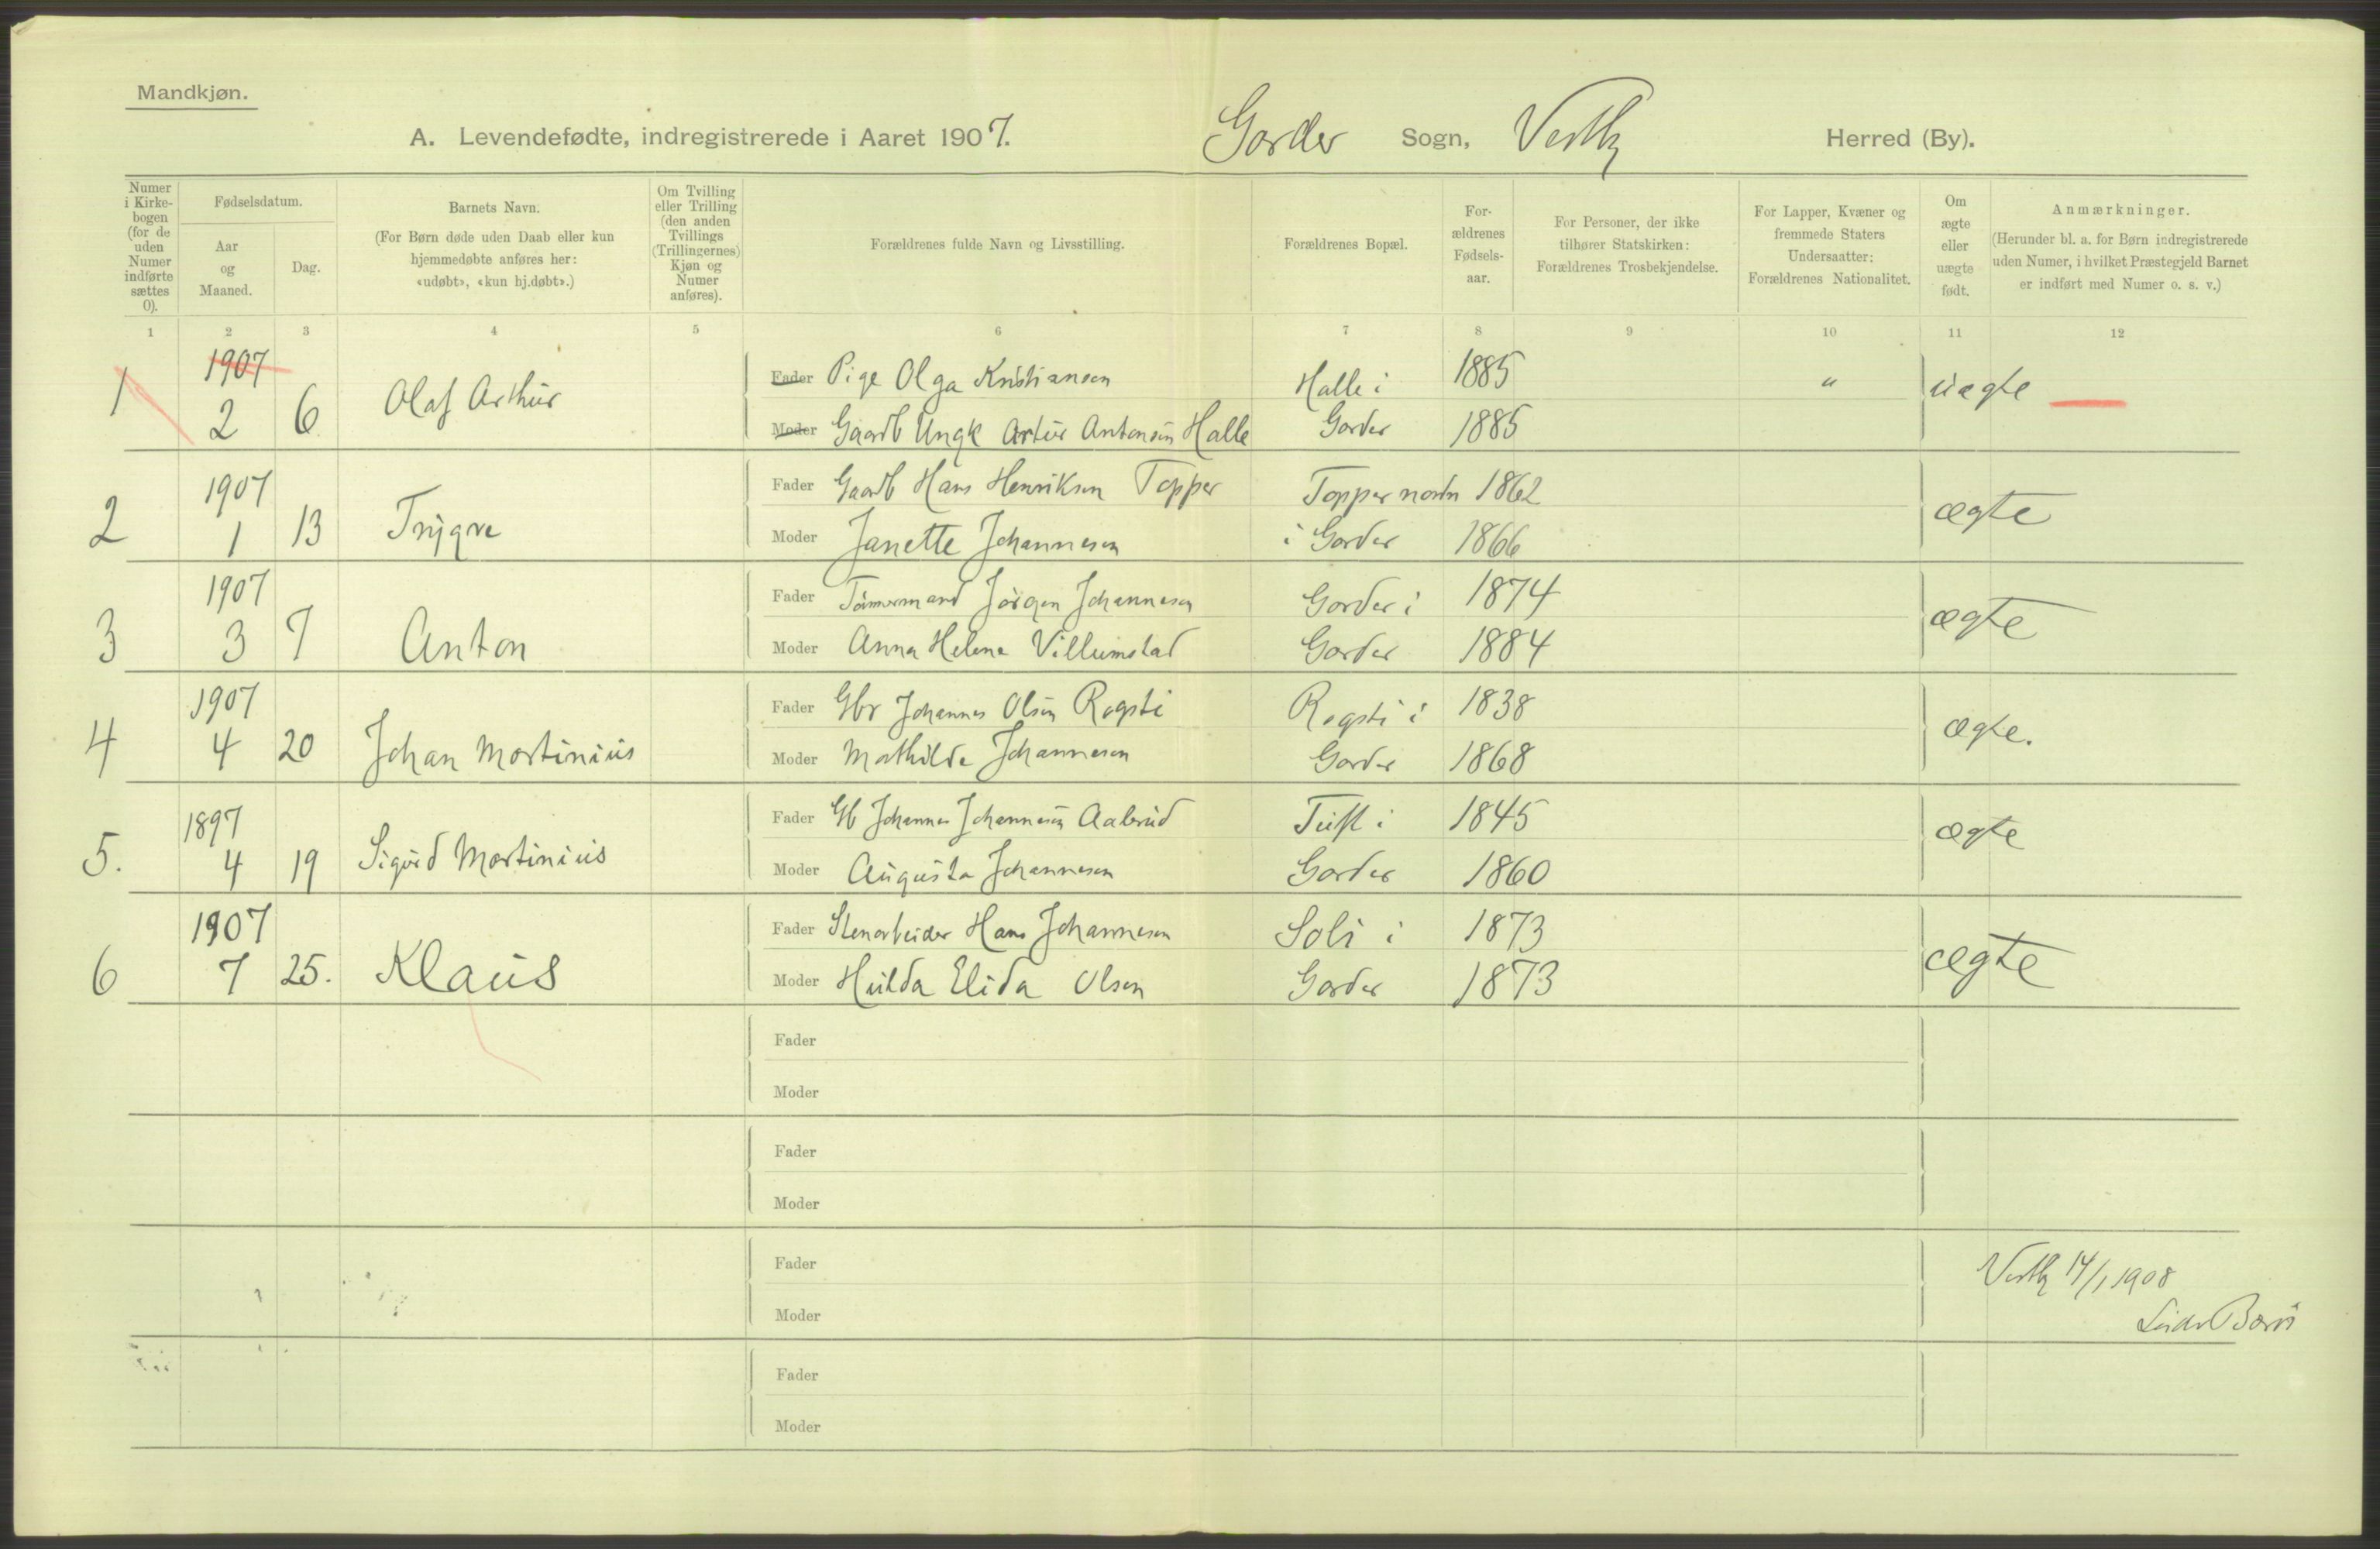 Mandkjøn.
A. Levendefødte, indregistrerede i Aaret 1907. Garder Sogn, Vestby Herred (By).
Numer i Kirkebogen (for de uden Numer indførte sættes 0).
Fødselsdatum.
Aar og Maaned.
Dag.
Barnets Navn.
(For Børn døde uden Daab eller kun hjemmedøbte anføres her: «udøbt», «kun hj.døbt».)
Om Tvilling eller Trilling (den anden Tvillings (Trillingernes) Kjøn og Numer anføres).
Forældrenes fulde Navn og Livsstilling.
Forældrenes Bopæl.
Forældrenes Fødselsaar.
For Personer, der ikke tilhører Statskirken: Forældrenes Trosbekjendelse.
For Lapper, Kvæner og fremmede Staters Undersaatter: Forældrenes Nationalitet.
Om ægte eller uægte født.
Anmærkninger.
(Herunder bl. a. for Børn indregistrerede uden Numer, i hvilket Præstegjeld Barnet er indført med Numer o. s. v.)
1 2 3 4 5 6 7 8 9 10 11 12
1 1907 2 6 Olaf Arthur
Fader Pige Olga Kristiansen Halle i 1885 " uægte
Moder Gaardb Ungk Artur Antonsen Halle Garder 1885
2 1907 1 13 Trygve
Fader Gaardb Hans Henriksen Topper Topper nordn 1862 ægte
Moder Janette Johannesen i Garder 1866
3 1907 3 7 Anton
Fader Tømmermand Jørgen Johannesen Garder i 1874 ægte
Moder Anna Helene Villumstad Garder 1884
4 1907 4 20 Johan Martinius
Fader Gbr Johannes Olsen Rogsti Rogsti i 1838 ægte.
Moder Mathilde Johannesen Garder 1868
5. 1897 4 19 Sigurd Martinius
Fader Gb Johannes Johannesen Aalerud Tuft i 1845 ægte
Moder Augusta Johannesen Garder 1860
6 1907 7 25. Klaus
Fader Stenarbeider Hans Johannesen Soli i 1873 ægte
Moder Hulda Elida Olsen Garder 1873
Fader
Moder
Fader
Moder
Fader
Moder
Vestby 14/1 1908
Fader
Moder